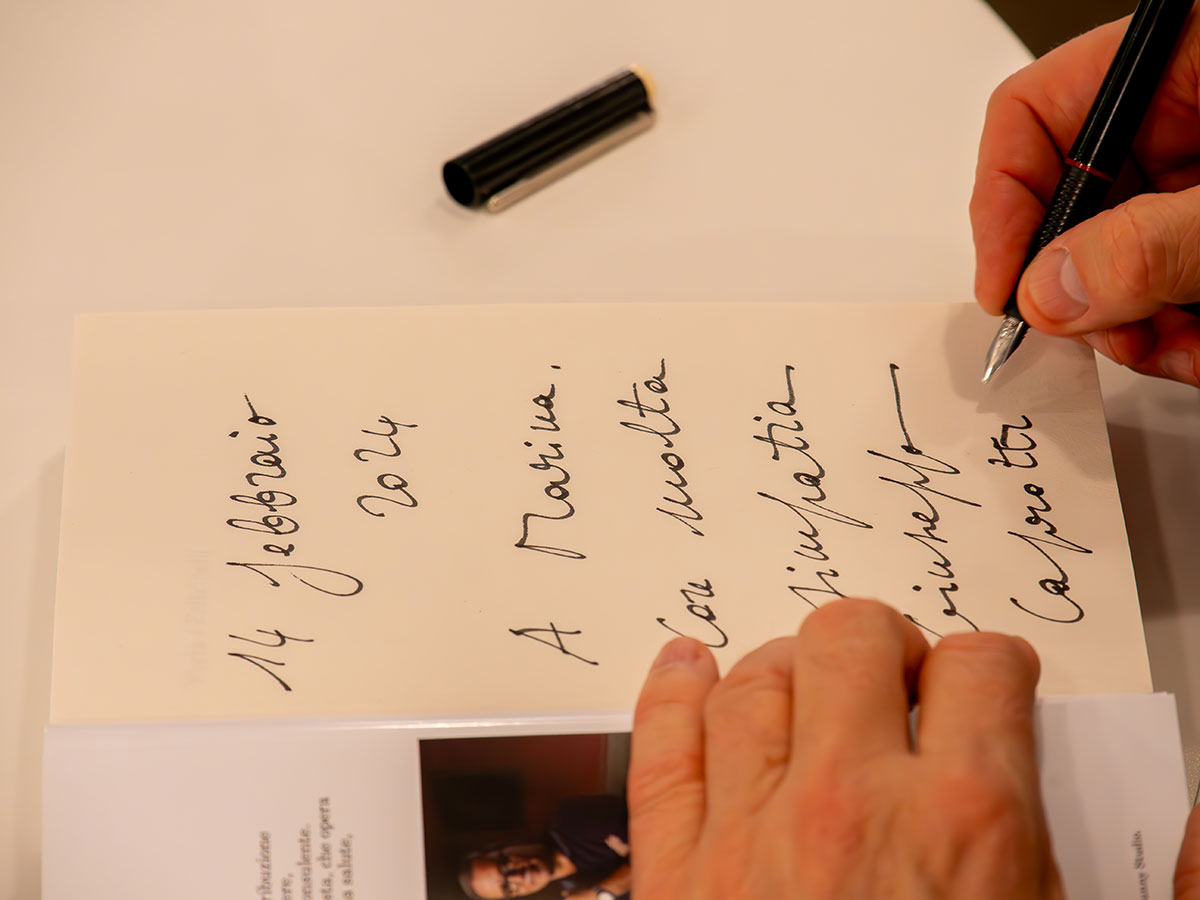 14 febbraio
2024
A Marina.
Con molta
simpatia
Giuseppe
Caprotti
ribuzione
ere,
onsulente.
ata, che opera
a salute,
nny Studio